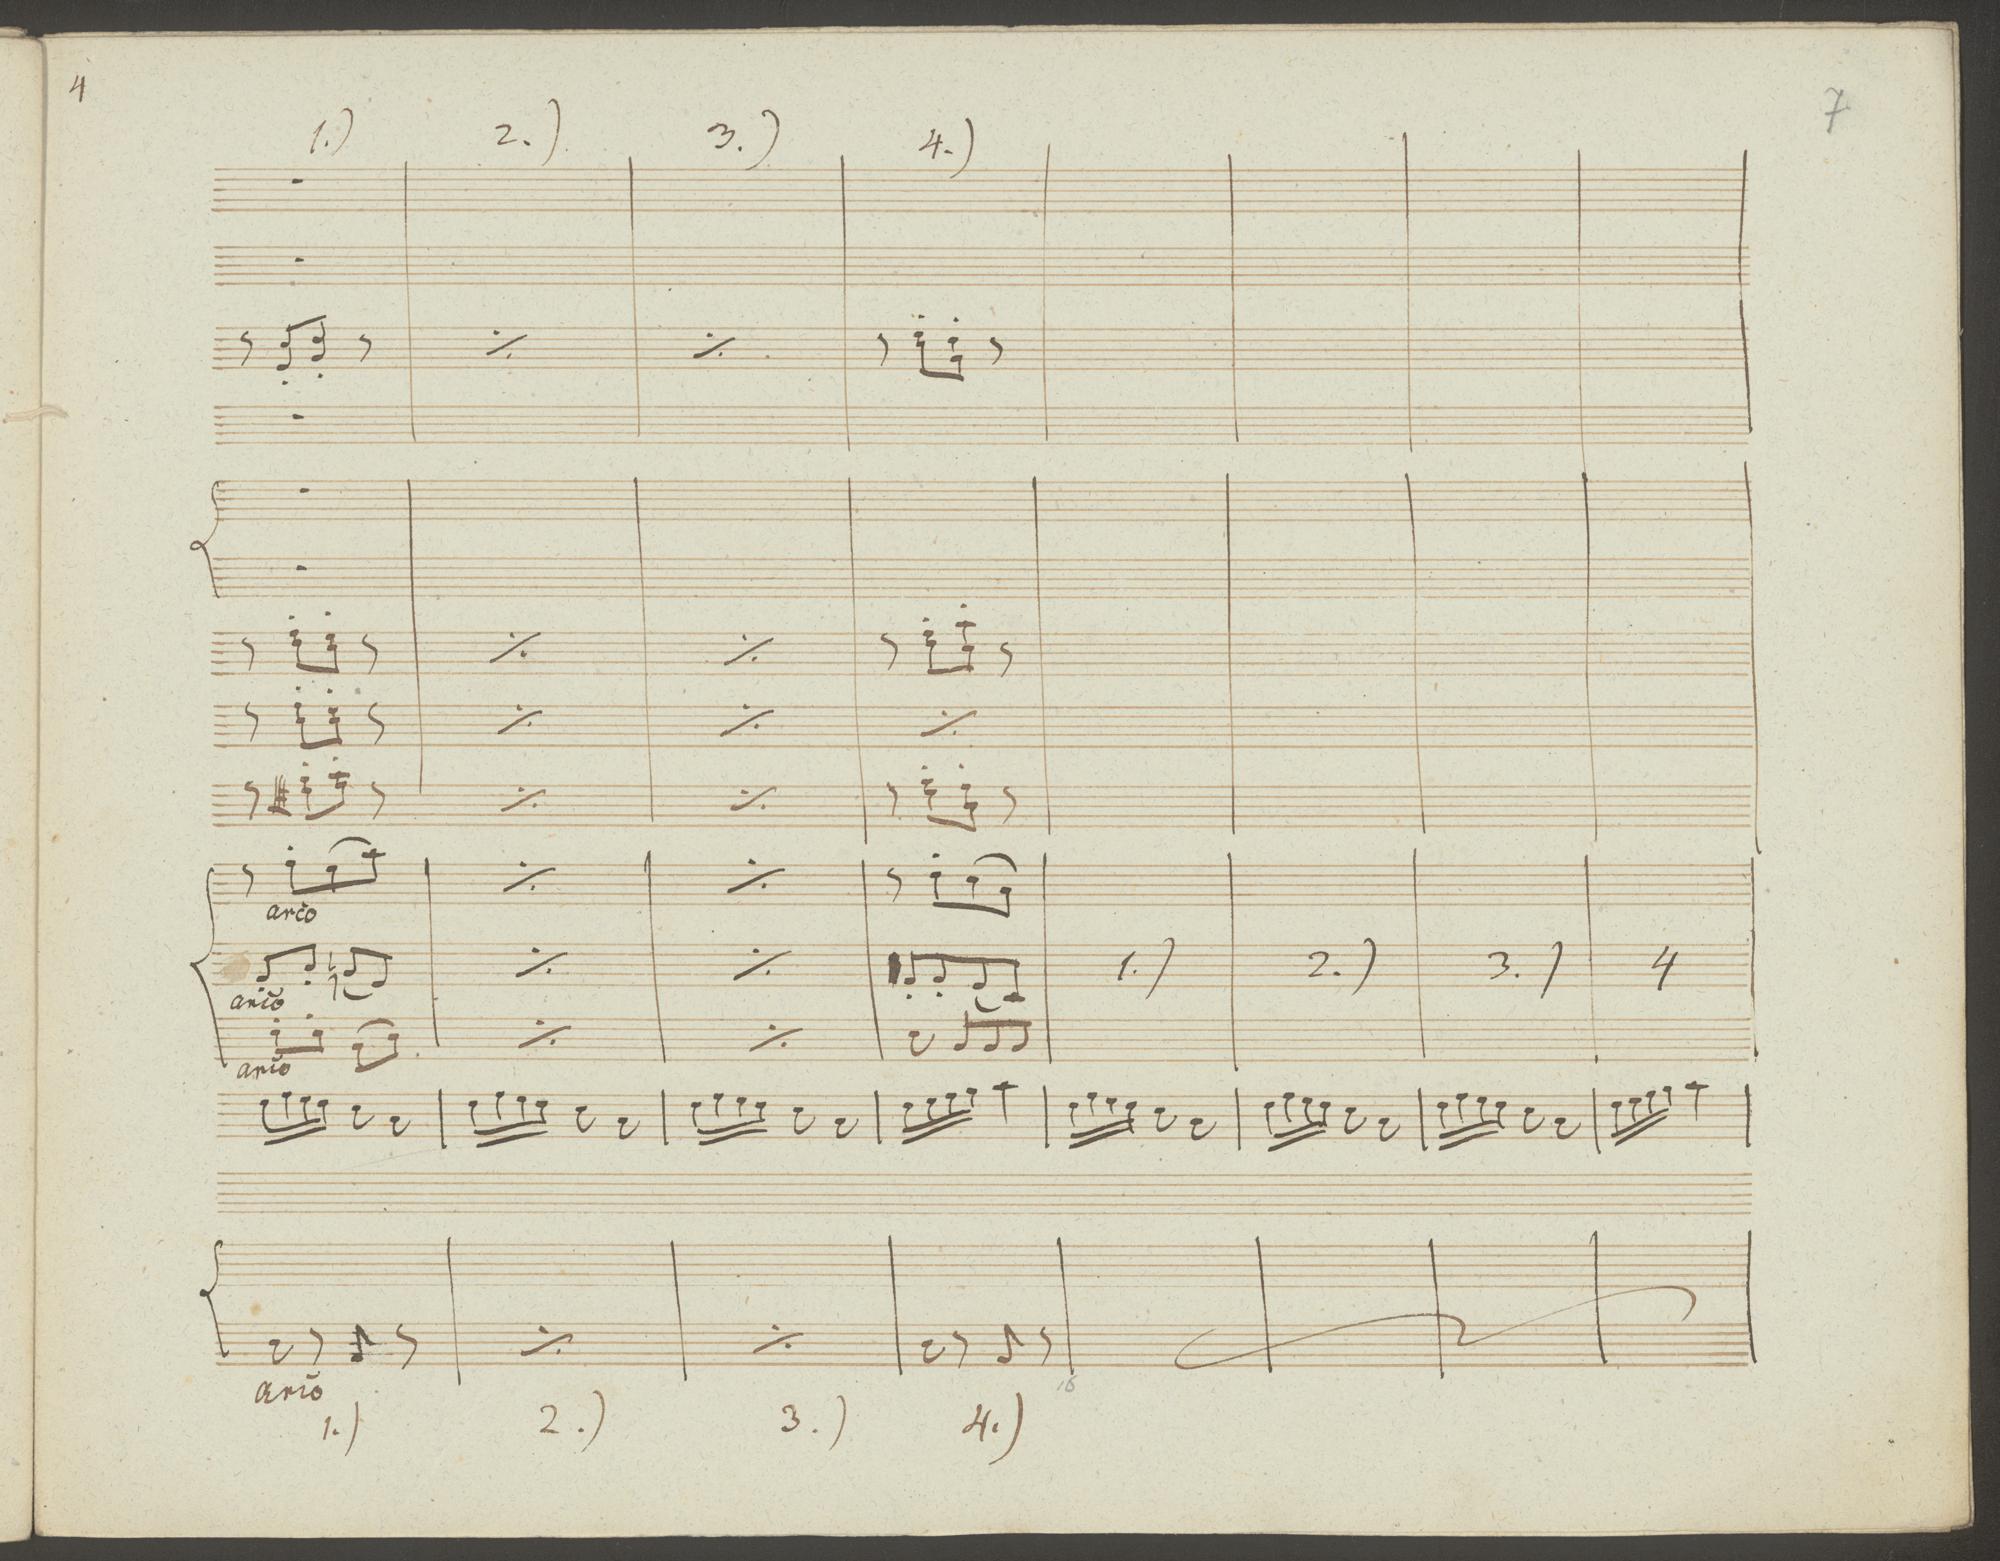 4
7
1.) 2.) 3.) 4.)
arco
1.) 2.) 3.) 4
arco
arco
16
arco
1.) 2.) 3.) 4.)